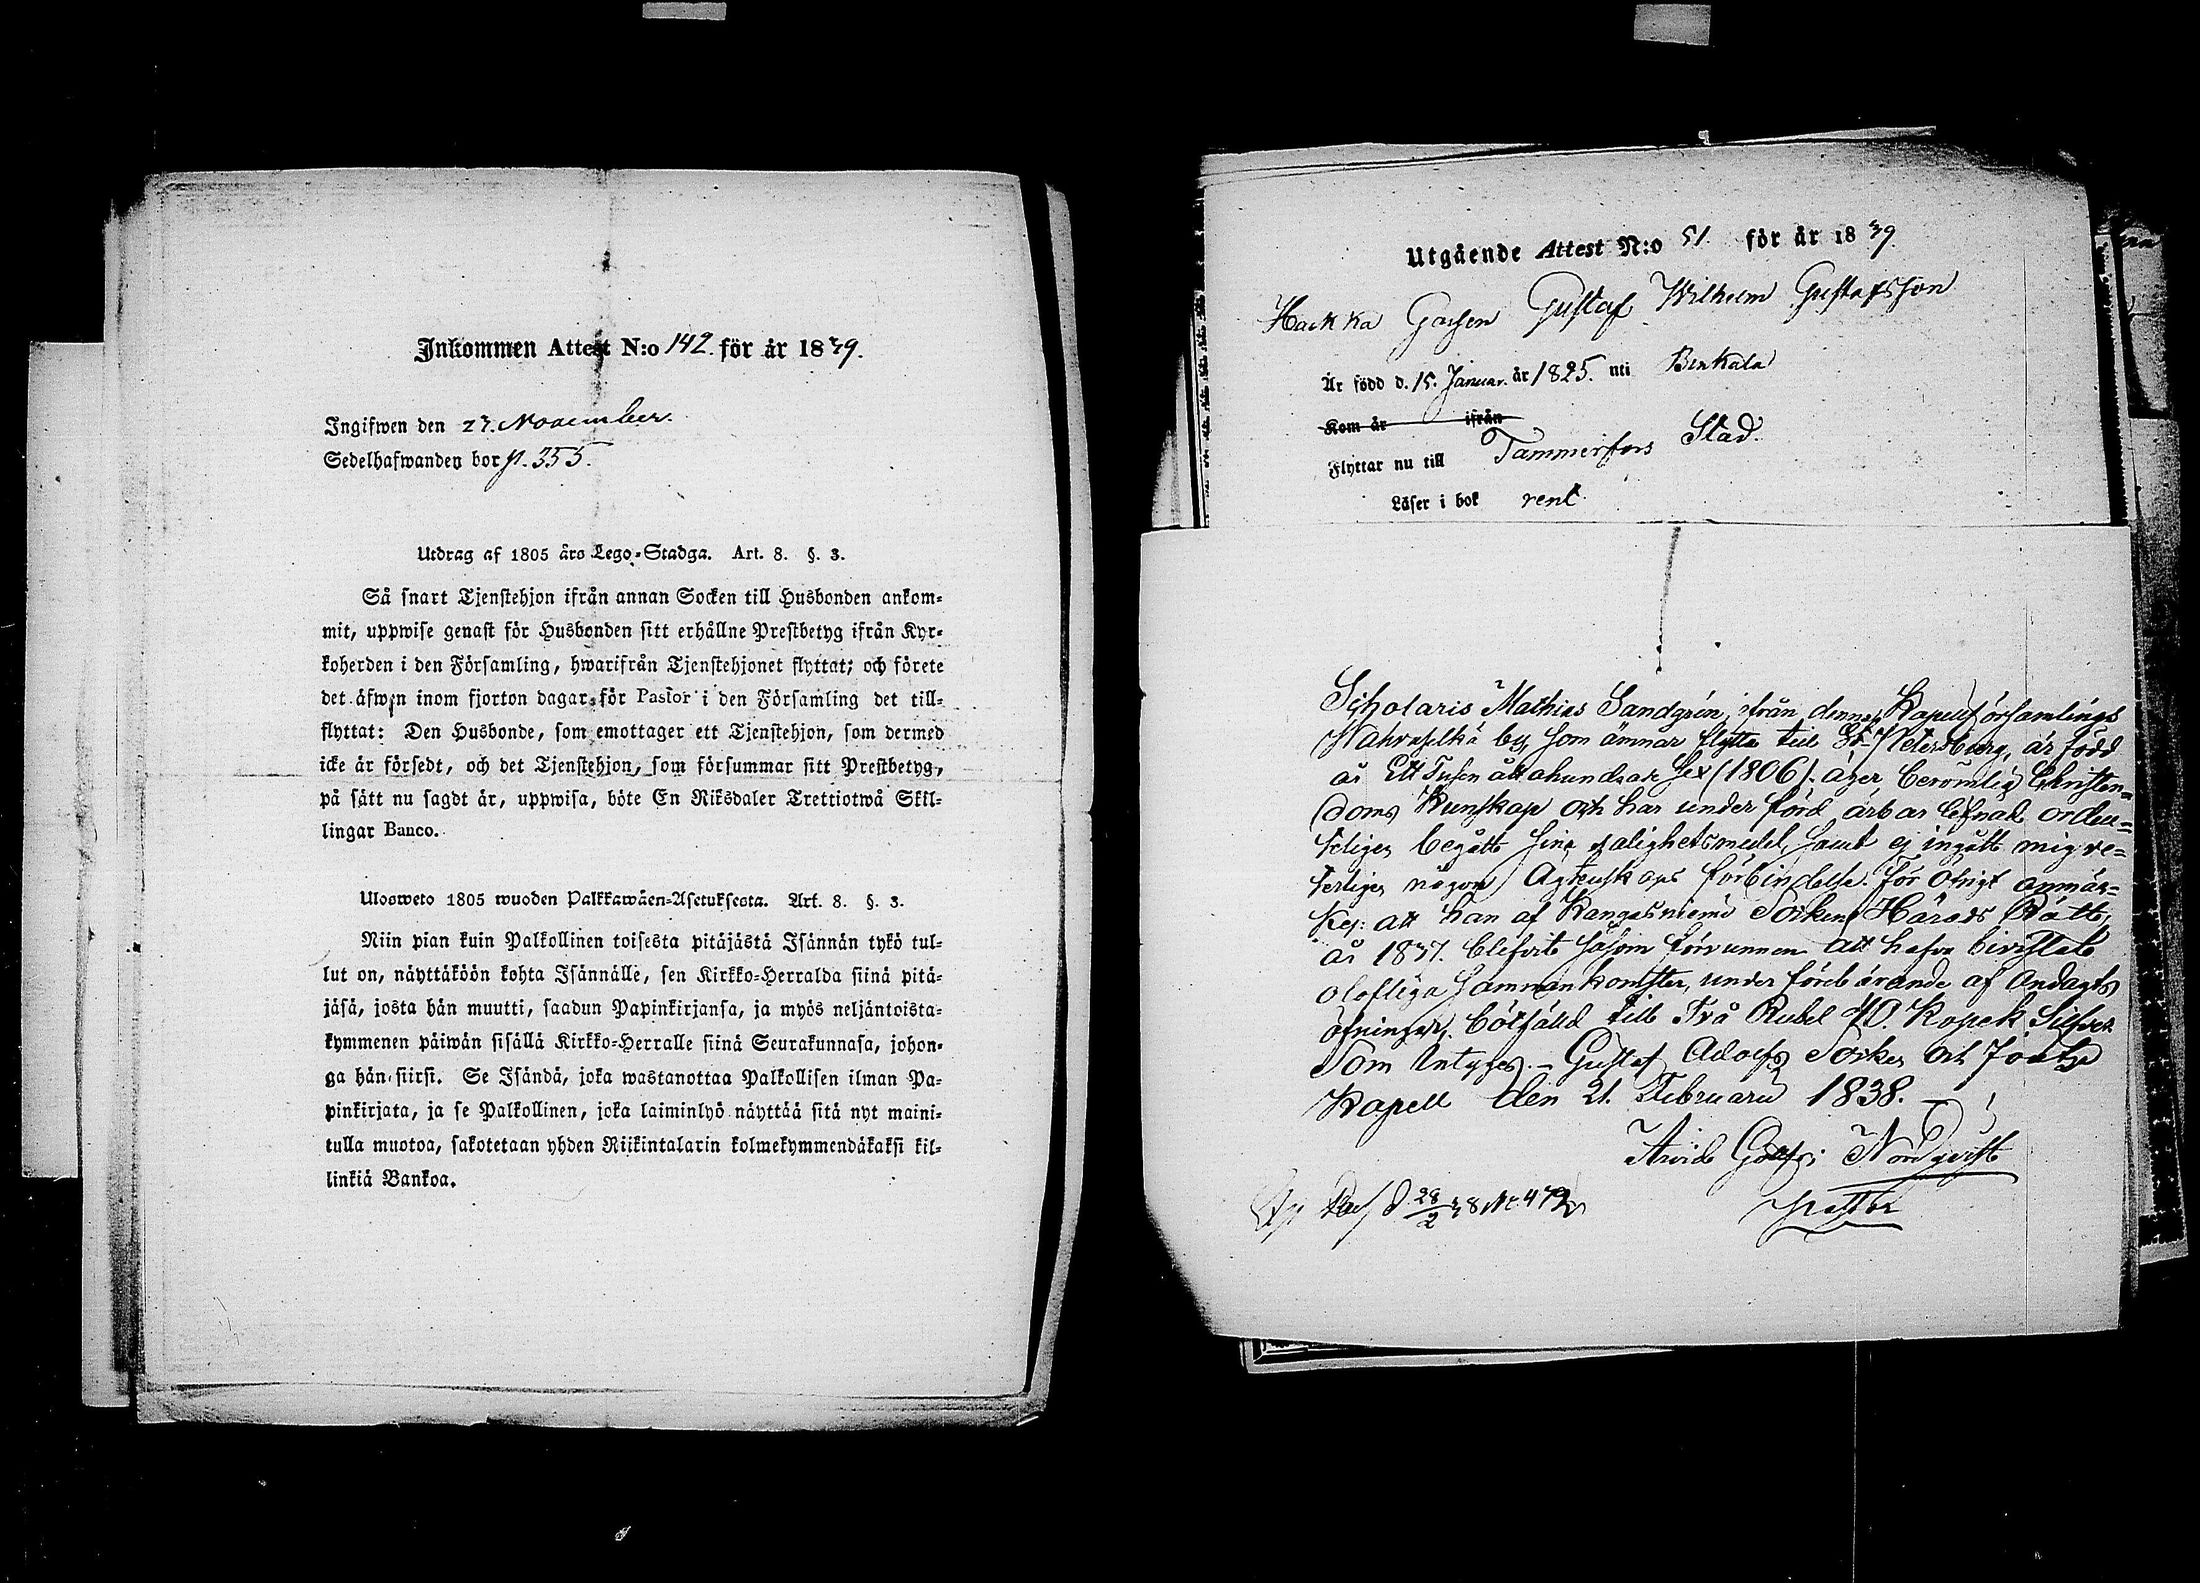 Inkommen Attest N:o 142. för år 1839.
Ingifwen den 27. November.
Sedelhafwanden bor p. 355.
Utdrag af 1805 års Lego-Stadga. Art. 8. §. 3.
Så snart Tjenstehjon ifrån annan Socken till Husbonden ankom-
mit, uppwise genast för Husbonden sitt erhållne Prestbetyg ifrån Kyr-
koherden i den Församling, hwarifrån Tjenstehjonet flyttat; och förete
det äfwen inom fjorton dagar för Pastor i den Församling det till-
flyttat: Den Husbonde, som emottager ett Tjenstehjon, som dermed
icke är försedt, och det Tjenstehjon, som försummar sitt Prestbetyg,
på sätt nu sagdt är, uppwisa, böte En Riksdaler Trettiotwå Skil-
lingar Banco.
Ulosweto 1805 wuoden Palkkawäen-Asetuksesta. Art. 8. §. 3.
Niin pian kuin Palkollinen toisesta pitäjästä Isännän tykö tul-
lut on, näyttäköön kohta Isännälle, sen Kirkko-Herralda siinä pitä-
jäsä, josta hän muutti, saadun Papinkirjansa, ja myös neljäntoista-
kymmenen päiwän sisällä Kirkko-Herralle siinä Seurakunnasa, johon-
ga hän siirsi. Se Isändä, joka wastanottaa Palkollisen ilman Pa-
pinkirjata, ja se Palkollinen, joka laiminlyö näyttää sitä nyt maini-
tulla muotoa, sakotetaan yhden Riikintalarin kolmekymmendäkaksi kil-
linkiä Bankoa.
Utgående Attest N:o 51. för år 1839.
Hackka Gossen Gustaf Wilhelm Gustafsson
Är född d. 15. Januar. år 1825. uti Birkala
Kom år ifrån
Flyttar nu till Tammerfors Stad.
Läser i bok rent
Scholaris Mathias Sandgrén, ifrån denna Kapellförsamlings
by, som ämnar flytta till St. Petersburg, är född
år Ett Tusen åttahundrade Sex (1806). äger berömlig Christen-
doms Kunskap och har under förd ärbar lefnad orden-
teligen begått sine salighetsmedel, samt ej ingått
någon Ägtenskaps förbindelse. För öfrigt anmär-
kes: att han af Kangasniemi Sockens Härads Rätt
år 1837. blefvit såsom förvunnen att hafva bivistat
olofliga sammankomster, under föreburande af Andagts
öfningar, bötfälld till Två Rubel 40. Kopek Silfver
Som Intygas. - Gustaf Adolfs Socken och Joutsa
Kapell den 21. Februarii 1838.
Arvid Nordqvist
Pastor
28/2 38 No 472